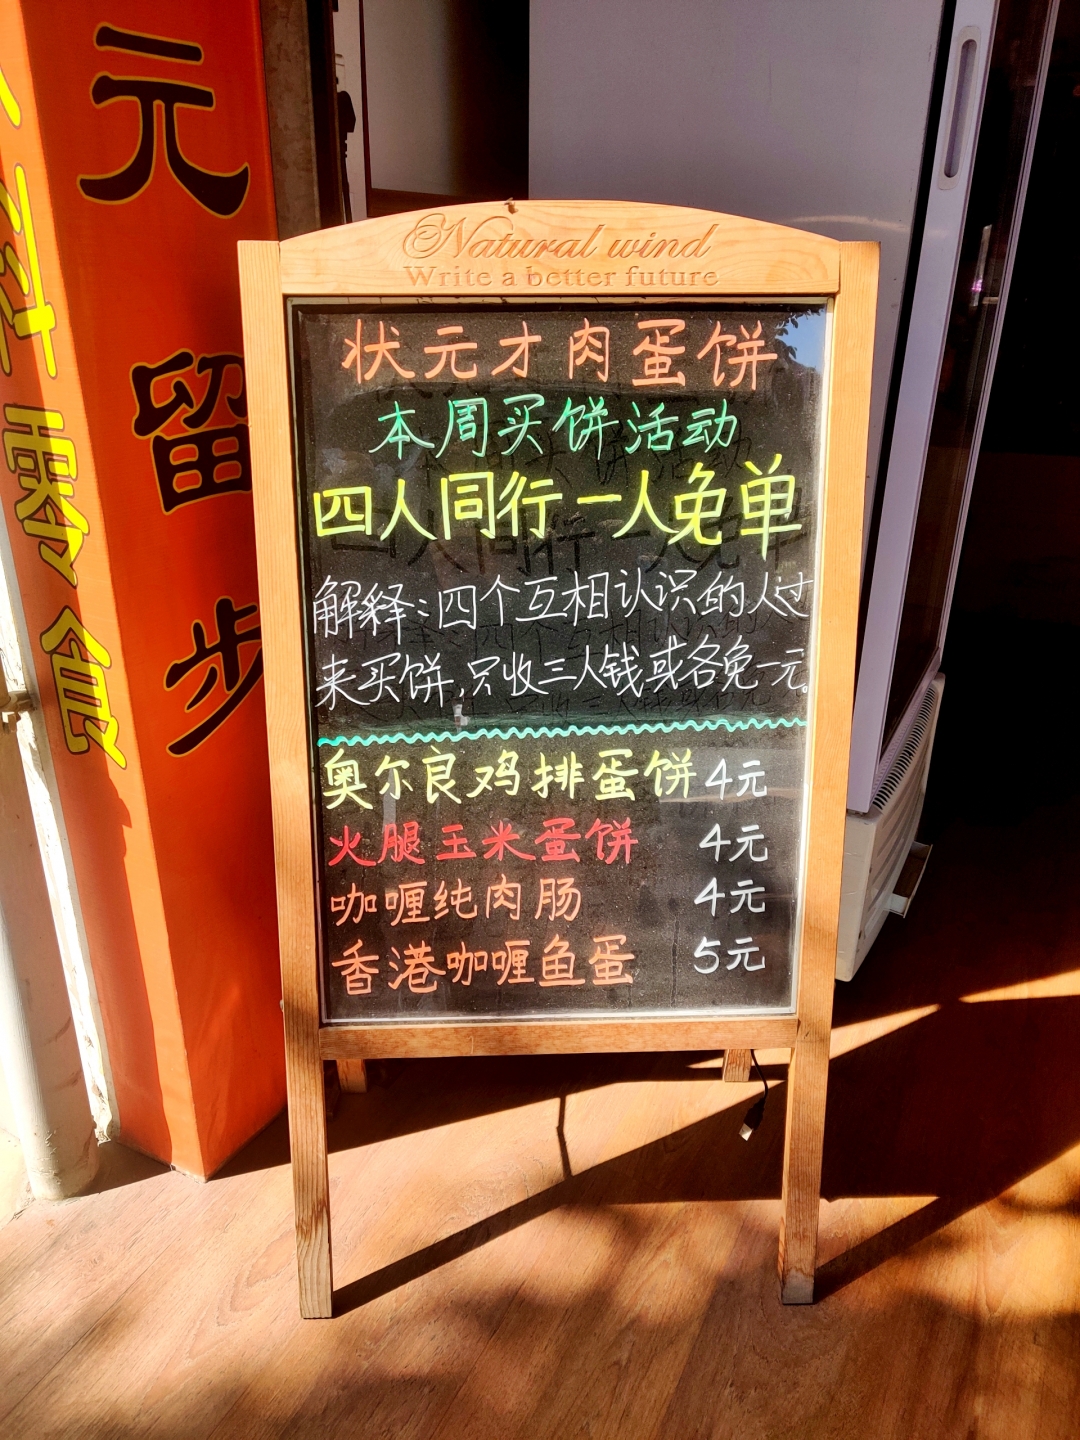 元留步
料零食
Natural wind
Write a better future
状元才肉蛋饼
本周买饼活动
四人同行一人免单
解释:四个互相认识的人过
来买饼,只收三人钱或各免一元。
奥尔良鸡排蛋饼 4元
火腿玉米蛋饼 4元
咖喱纯肉肠 4元
香港咖喱鱼蛋 5元